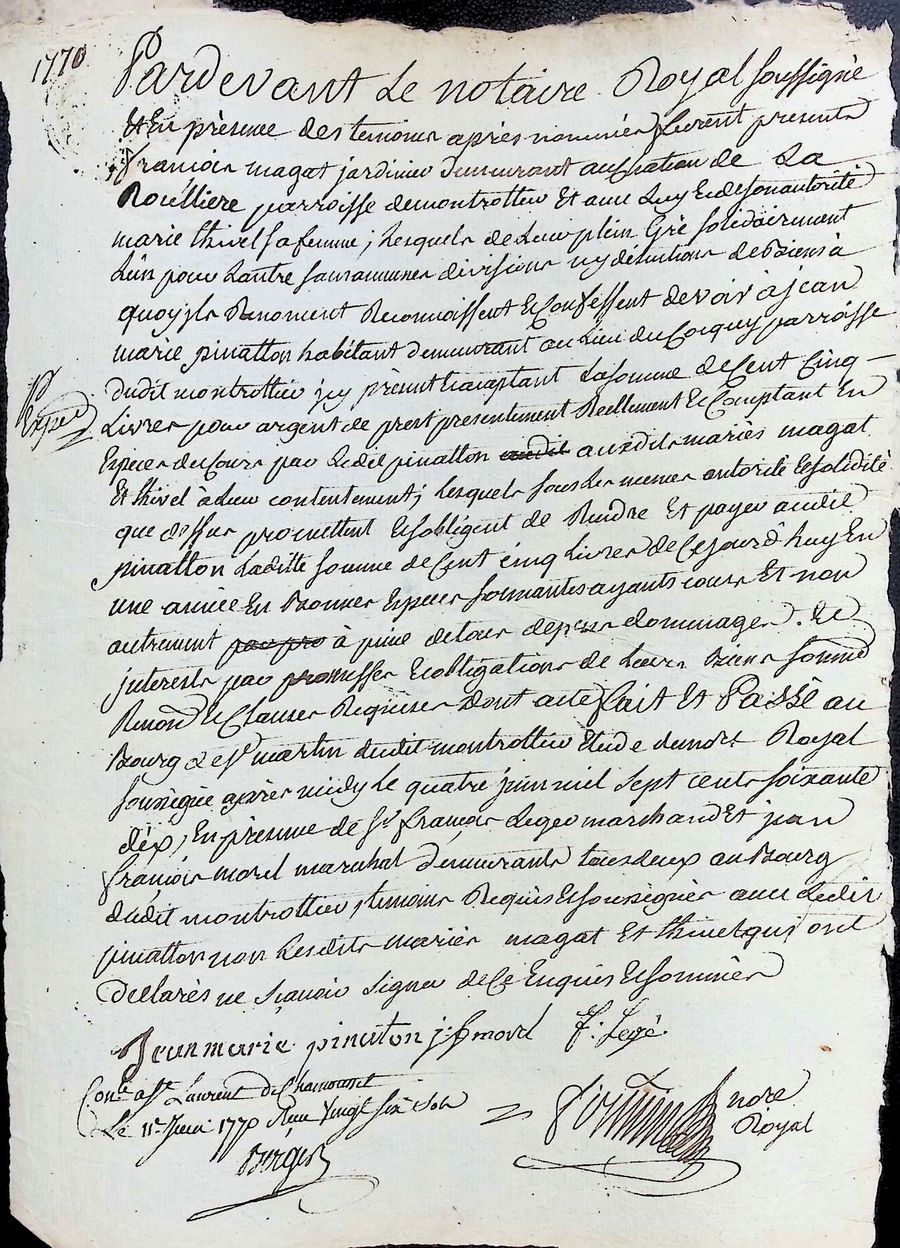 1770
Pardevant Le notaire Royal soussigné
Et En présence des temoins après nommés furent presents
françois magat jardinier demeurant au Chateau de La
Roüilliere parroisse de montrottier Et avec Luy Et de son autorité
marie thivel sa femme ; Lesquels de Leur plein Gré solidairement
L'un pour L'autre sans aucunes divisions ny de biens à
quoy ils Renoncent Reconnoissent Et Confessent devoir à jean
marie pinatton habitant demeurant au Lieu du Coquy parroisse
dudit montrottier jcy présent acceptant La somme de Cent Cinq
Exped
Livres pour argent de prest presentement Reellement Et Comptant En
Especes du Cours par Ledit pinatton audit auxdits mariés magat
Et thivel à Leur contentement ; Lesquels sous Les memes autorité Et solidité
que dessus promettent Et s'obligent de Rendre Et payer audit
pinatton Laditte somme de Cent cinq Livres de Ce jourd'huy En
une année En Bonnes Especes sonnantes ayants cours Et non
autrement par pro à peine de tous depens dommages Et
jnterests par promesses Et obligations de Leurs Biens soumis
Renon Et Clauses Requises Dont acte fait Et Passé au
Bourg de st martin dudit montrottier Etude du nore Royal
soussigné après midy Le quatre juin mil sept cents soixante
dix, En présence de sr françois Leger marchand Et jean
françois morel marechal demeurants tous deux au Bourg
dudit montrottier, temoins Requis Et soussignés avec Ledit
pinatton non Lesdits mariés magat Et thivel qui ont
declarés ne sçavoir signer de Ce Enquis Et sommés
Jean marie pinaton j: f morel F. Legé
Conlé a st Laurent de Chamousset
Le 11e Juin 1770 Reçu Vingt six sols
nore
Royal